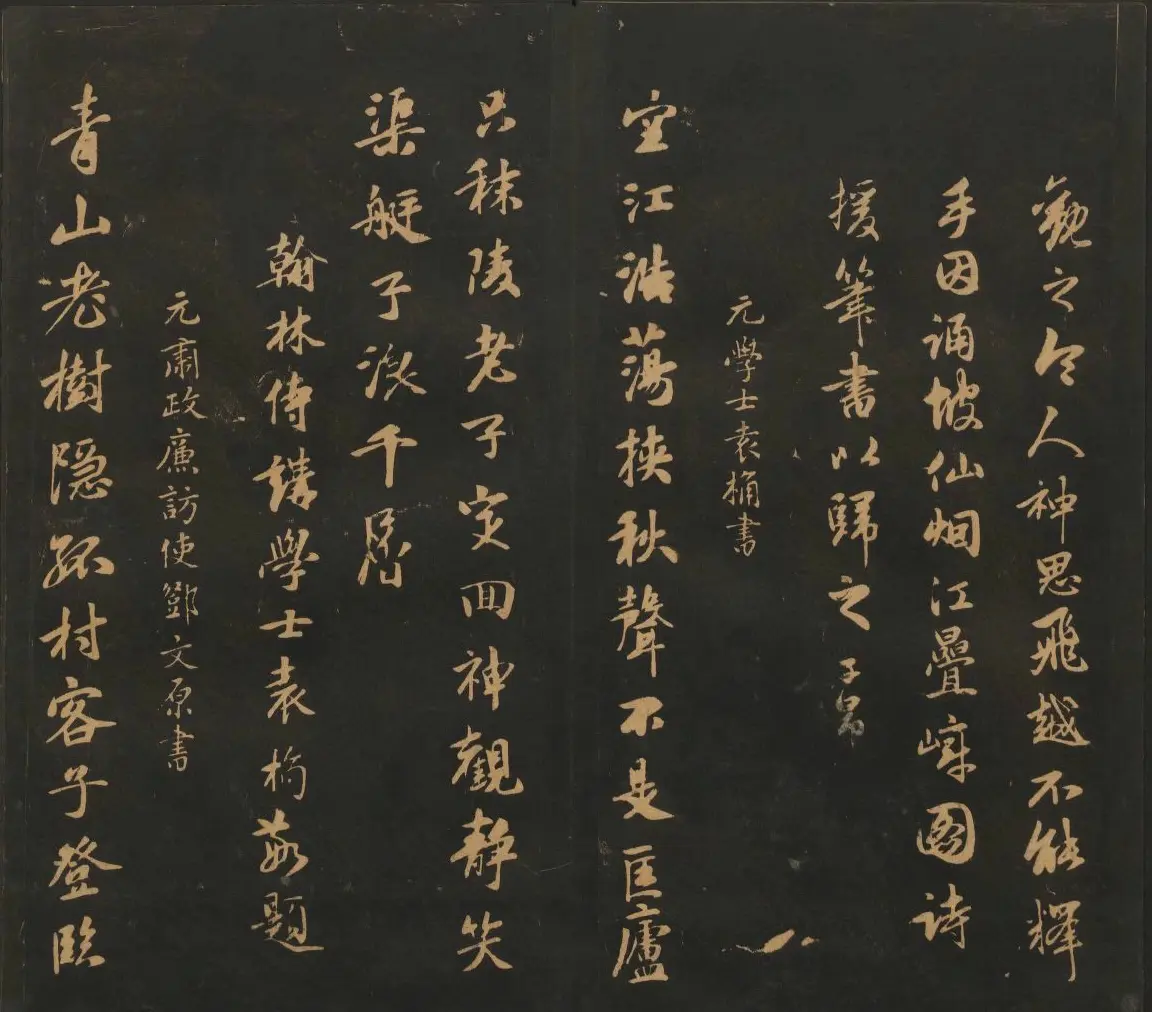 觀之令人神思飛越不能釋
手因誦坡仙烟江疊嶂圖詩
援筆書以歸之 子昂
元學士袁桷書
空江浩蕩挾秋聲不是匡廬
只秣陵老子定回神觀静笑
渠艇子浪千層
翰林侍講學士袁桷敬題
元肅政廉訪使鄧文原書
青山老樹隱孤村客子登臨